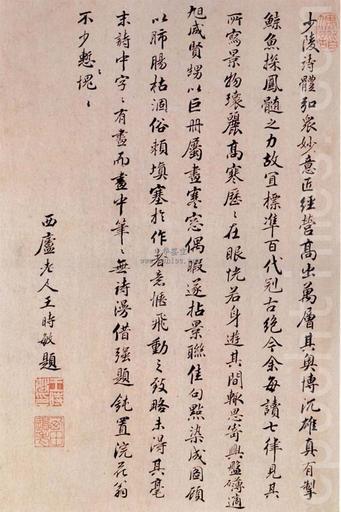 少陵诗體弘衆妙意匠經營高出萬層其奥博沉雄真有掣
鲸魚探鳳髓之力故宜標準百代冠古絶今余每讀七律見其
所寫景物瓌麗高寒歷〻在眼恍若身遊其間輒思寄興盤礴適
旭咸賢甥以巨册屬畫寒窓偶暇遂拈景聯佳句點染成圖顧
以肺腸枯涸俗賴填塞於作者意惬飛動之致略未得其毫
末詩中字〻有畫而畫中筆〻無詩漫借强題鈍置浣花翁
不少慙愧〻
西廬老人王時敏題